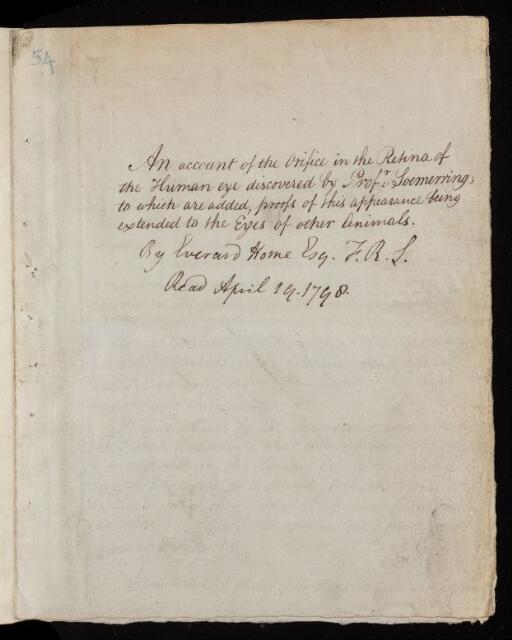 54
An account of the Orifice in the Retina of
the Human eye discovered by Prof.r Soemerring;
to which are added, proofs of this appearance being
extended to the Eyes of other Animals.
By Everard Home Esq. F. R. S.
Read April 19. 1798.